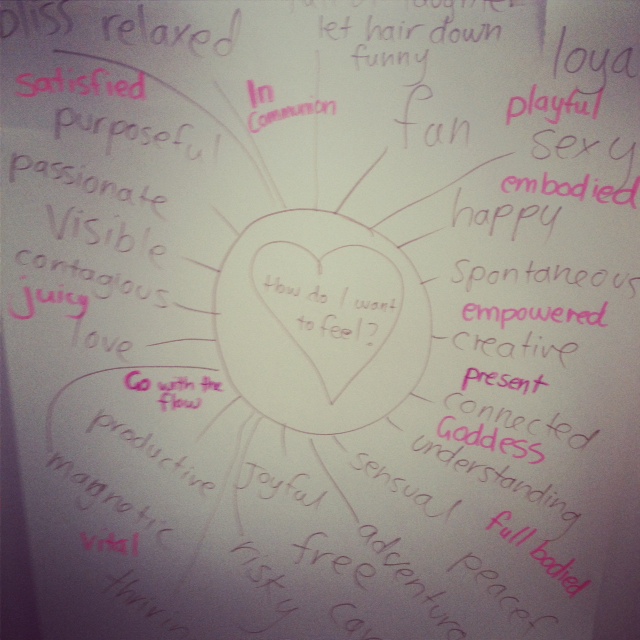 bliss relaxed
let hair down
funny
loya
satisfied
In
Communion
playful
purposeful
fun
sexy
passionate
embodied
Visible
happy
contagious
Spontaneous
juicy
How do I want
to feel?
empowered
love
creative
Go with the
flow
present
connected
Goddess
productive
understanding
magnetic
Joyful
sensual
full bodied
vital
risky
free
adventure
peacef